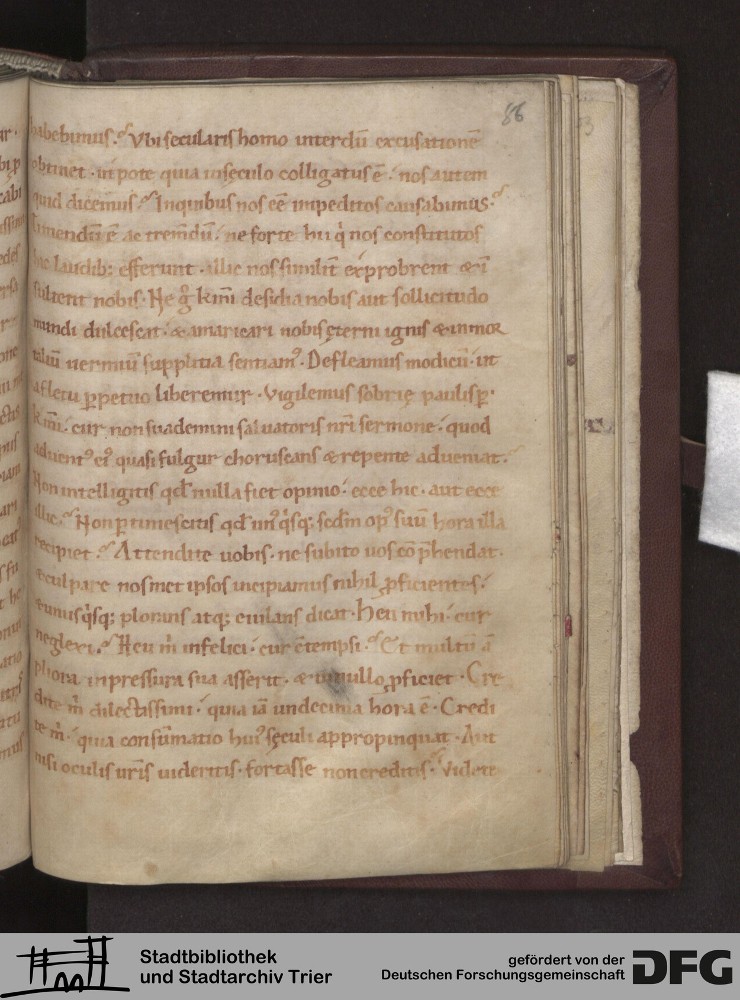 86
habebimus. Vbi secularis homo interdū excusationē
obtinet · ut pote quia inseculo colligatus ē · nos autem
quid dicemus. Inquibus nos eē impeditos causabimus.
Timendū ē ac tremdū · ne forte hii q̇ nos constitutos
hic laudib; efferunt · illic nos similit̄ exprobrent &
sultent nobis · Ne g̊ kmī desidia nobis aut sollicitudo
mundi dulcescat · & amaricari nobis ęterni ignis & inmor
taliū uermiū supplitia sentiamꝰ · Defleamus modicū · ut
a fletu ꝑpetuo liberemur · Vigilemus sobrię paulisꝑ ·
kmī · cur non suademini saluatoris nrī sermone · quod
aduentꝰ eiꝰ quasi fulgur choruscans & repente adueniat.
Non intelligitis qđ nulla fiet opinio · ecce hic · aut ecce
illic. Non ꝑtimescitis qđ unꝰq̇sq; scdm̄ opꝰ suū hora illa
recipiet. Attendite uobis · ne subito uos cōp̄hendat ·
& culpare nosmet ipsos incipiamus nihil ꝓficientes ·
& unusq̇sq; plorans atq; eiulans dicat · Heu mihi · cur
neglexi. Heu m̄ infelici · cur ētempsi. Et multū ā
pliora inpressura sua asserit · & in nullo ꝓficiet · Cre
dite m̄ dilectissimi · quia iā undecima hora ē · Credi
te m̄ · quia consūmatio huiꝰ sęculi appropinquat · Aut
nisi oculis urīs uideritis · fortasse non creditis · Videte
Stadtbibliothek
und Stadtarchiv Trier
gefördert von der
Deutschen Forschungsgemeinschaft
DFG